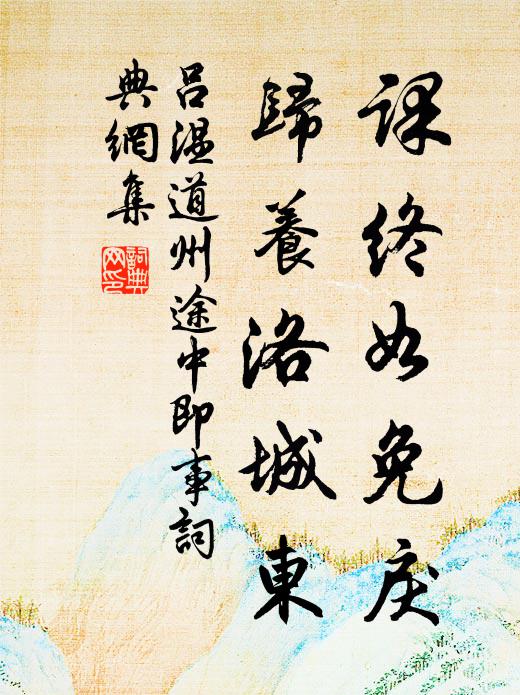 課終如免戾
歸養洛城東
吕温道州途中即事詞
典網集
詞典
网印